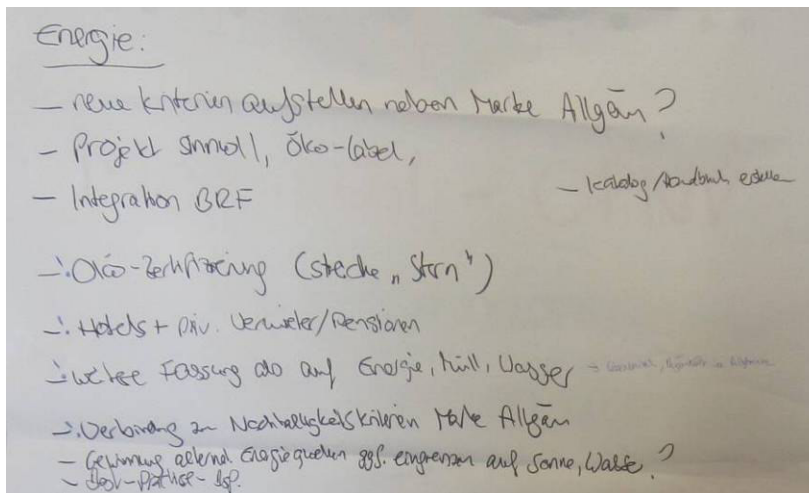 Energie:
— neue Kriterien aufstellen neben Marke Allgäu?
— Projekt sinnvoll, Öko-Label,
— Integration BRF
— Katalog/Handbuch erstellen
—: Öko-Zertifizierung ( „Stern")
—: Hotels + priv. Vermieter/Pensionen
—: weitere Fassung als auf Energie, Müll, Wasser
—: Verbindung zu Nachhaltigkeitskriterien Marke Allgäu
— Gewinnung Energiequellen ggf. eingrenzen auf Sonne, Wasser?
— Best-Practise-Bsp.